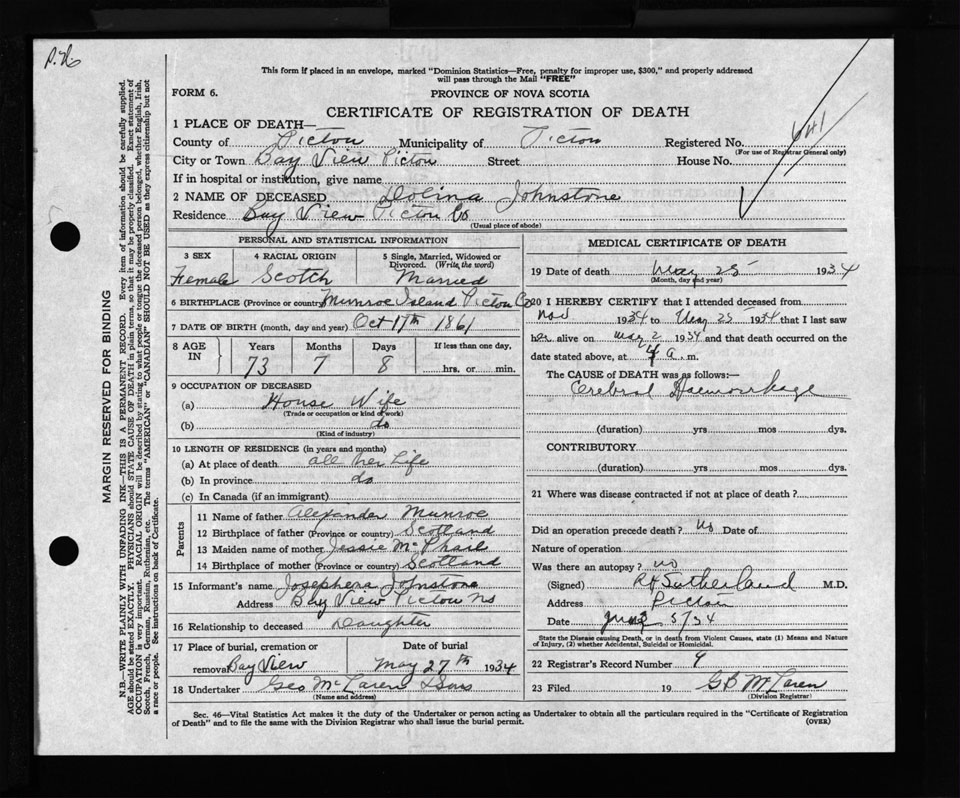 This form if placed in an envelope, marked "Dominion Statistics—Free, penalty for improper use, $300," and properly addressed
will pass through the Mail "FREE"
FORM 6.
PROVINCE OF NOVA SCOTIA
CERTIFICATE OF REGISTRATION OF DEATH
1 PLACE OF DEATH—
County of Picton Municipality of Picton Registered No. 641
(For use of Registrar General only)
City or Town Bay View Picton Street House No.
If in hospital or institution, give name
2 NAME OF DECEASED Dolina Johnstone
Residence Bay View Picton Co
(Usual place of abode)
PERSONAL AND STATISTICAL INFORMATION
3 SEX
Female
4 RACIAL ORIGIN
Scotch
5 Single, Married, Widowed or
Divorced. (Write the word)
Married
6 BIRTHPLACE (Province or country) Munroe Island Picton Co
7 DATE OF BIRTH (month, day and year) Oct 17th 1861
8 AGE IN
Years Months Days If less than one day,
73 7 8 hrs. or min.
9 OCCUPATION OF DECEASED
(a) House Wife
(Trade or occupation or kind of work)
(b) do
(Kind of industry)
10 LENGTH OF RESIDENCE (in years and months)
(a) At place of death all her Life
(b) In province do
(c) In Canada (if an immigrant)
Parents
11 Name of father Alexander Munroe
12 Birthplace of father (Province or country) Scotland
13 Maiden name of mother Jessie McPhail
14 Birthplace of mother (Province or country) Scotland
15 Informant's name Josephena Johnstone
Address Bay View Picton NS
16 Relationship to deceased Daughter
17 Place of burial, cremation or
removal Bay View
Date of burial
May 27th 1934
18 Undertaker Geo McLaren & Sons
(Name and address)
MEDICAL CERTIFICATE OF DEATH
19 Date of death May 25 1934
(Month, day and year)
20 I HEREBY CERTIFY that I attended deceased from
Nov 1934 to May 25 1934 that I last saw
her alive on May 2 1934 and that death occurred on the
date stated above, at 4 a. m.
The CAUSE OF DEATH was as follows:—
Cerebral Haemorrhage
(duration) yrs mos dys.
CONTRIBUTORY
(duration) yrs mos dys.
21 Where was disease contracted if not at place of death?
Did an operation precede death? no Date of
Nature of operation
Was there an autopsy? no
(Signed) Sutherland M.D.
Address Picton
Date 5/34
State the Disease causing Death, or in death from Violent Causes, state (1) Means and Nature
of Injury, (2) whether Accidental, Suicidal or Homicidal.
22 Registrar's Record Number 9
23 Filed 19 GB McLaren
(Division Registrar)
Sec. 46—Vital Statistics Act makes it the duty of the Undertaker or person acting as Undertaker to obtain all the particulars required in the "Certificate of Registration
of Death" and to file the same with the Division Registrar who shall issue the burial permit. (OVER)
MARGIN RESERVED FOR BINDING
N.B.—WRITE PLAINLY WITH UNFADING INK—THIS IS A PERMANENT RECORD. Every item of information should be carefully supplied.
AGE should be stated EXACTLY. PHYSICIANS should STATE CAUSE OF DEATH in plain terms, so that it may be properly classified. Exact statement of
OCCUPATION is very important. RACIAL ORIGIN will be described by stating to what people or tongue the deceased person belonged, whether English, Irish,
Scotch, French, German, Russian, Ruthenian, etc. The terms "AMERICAN" or "CANADIAN" SHOULD NOT BE USED as they express citizenship but not
a race or people. See instructions on back of Certificate.